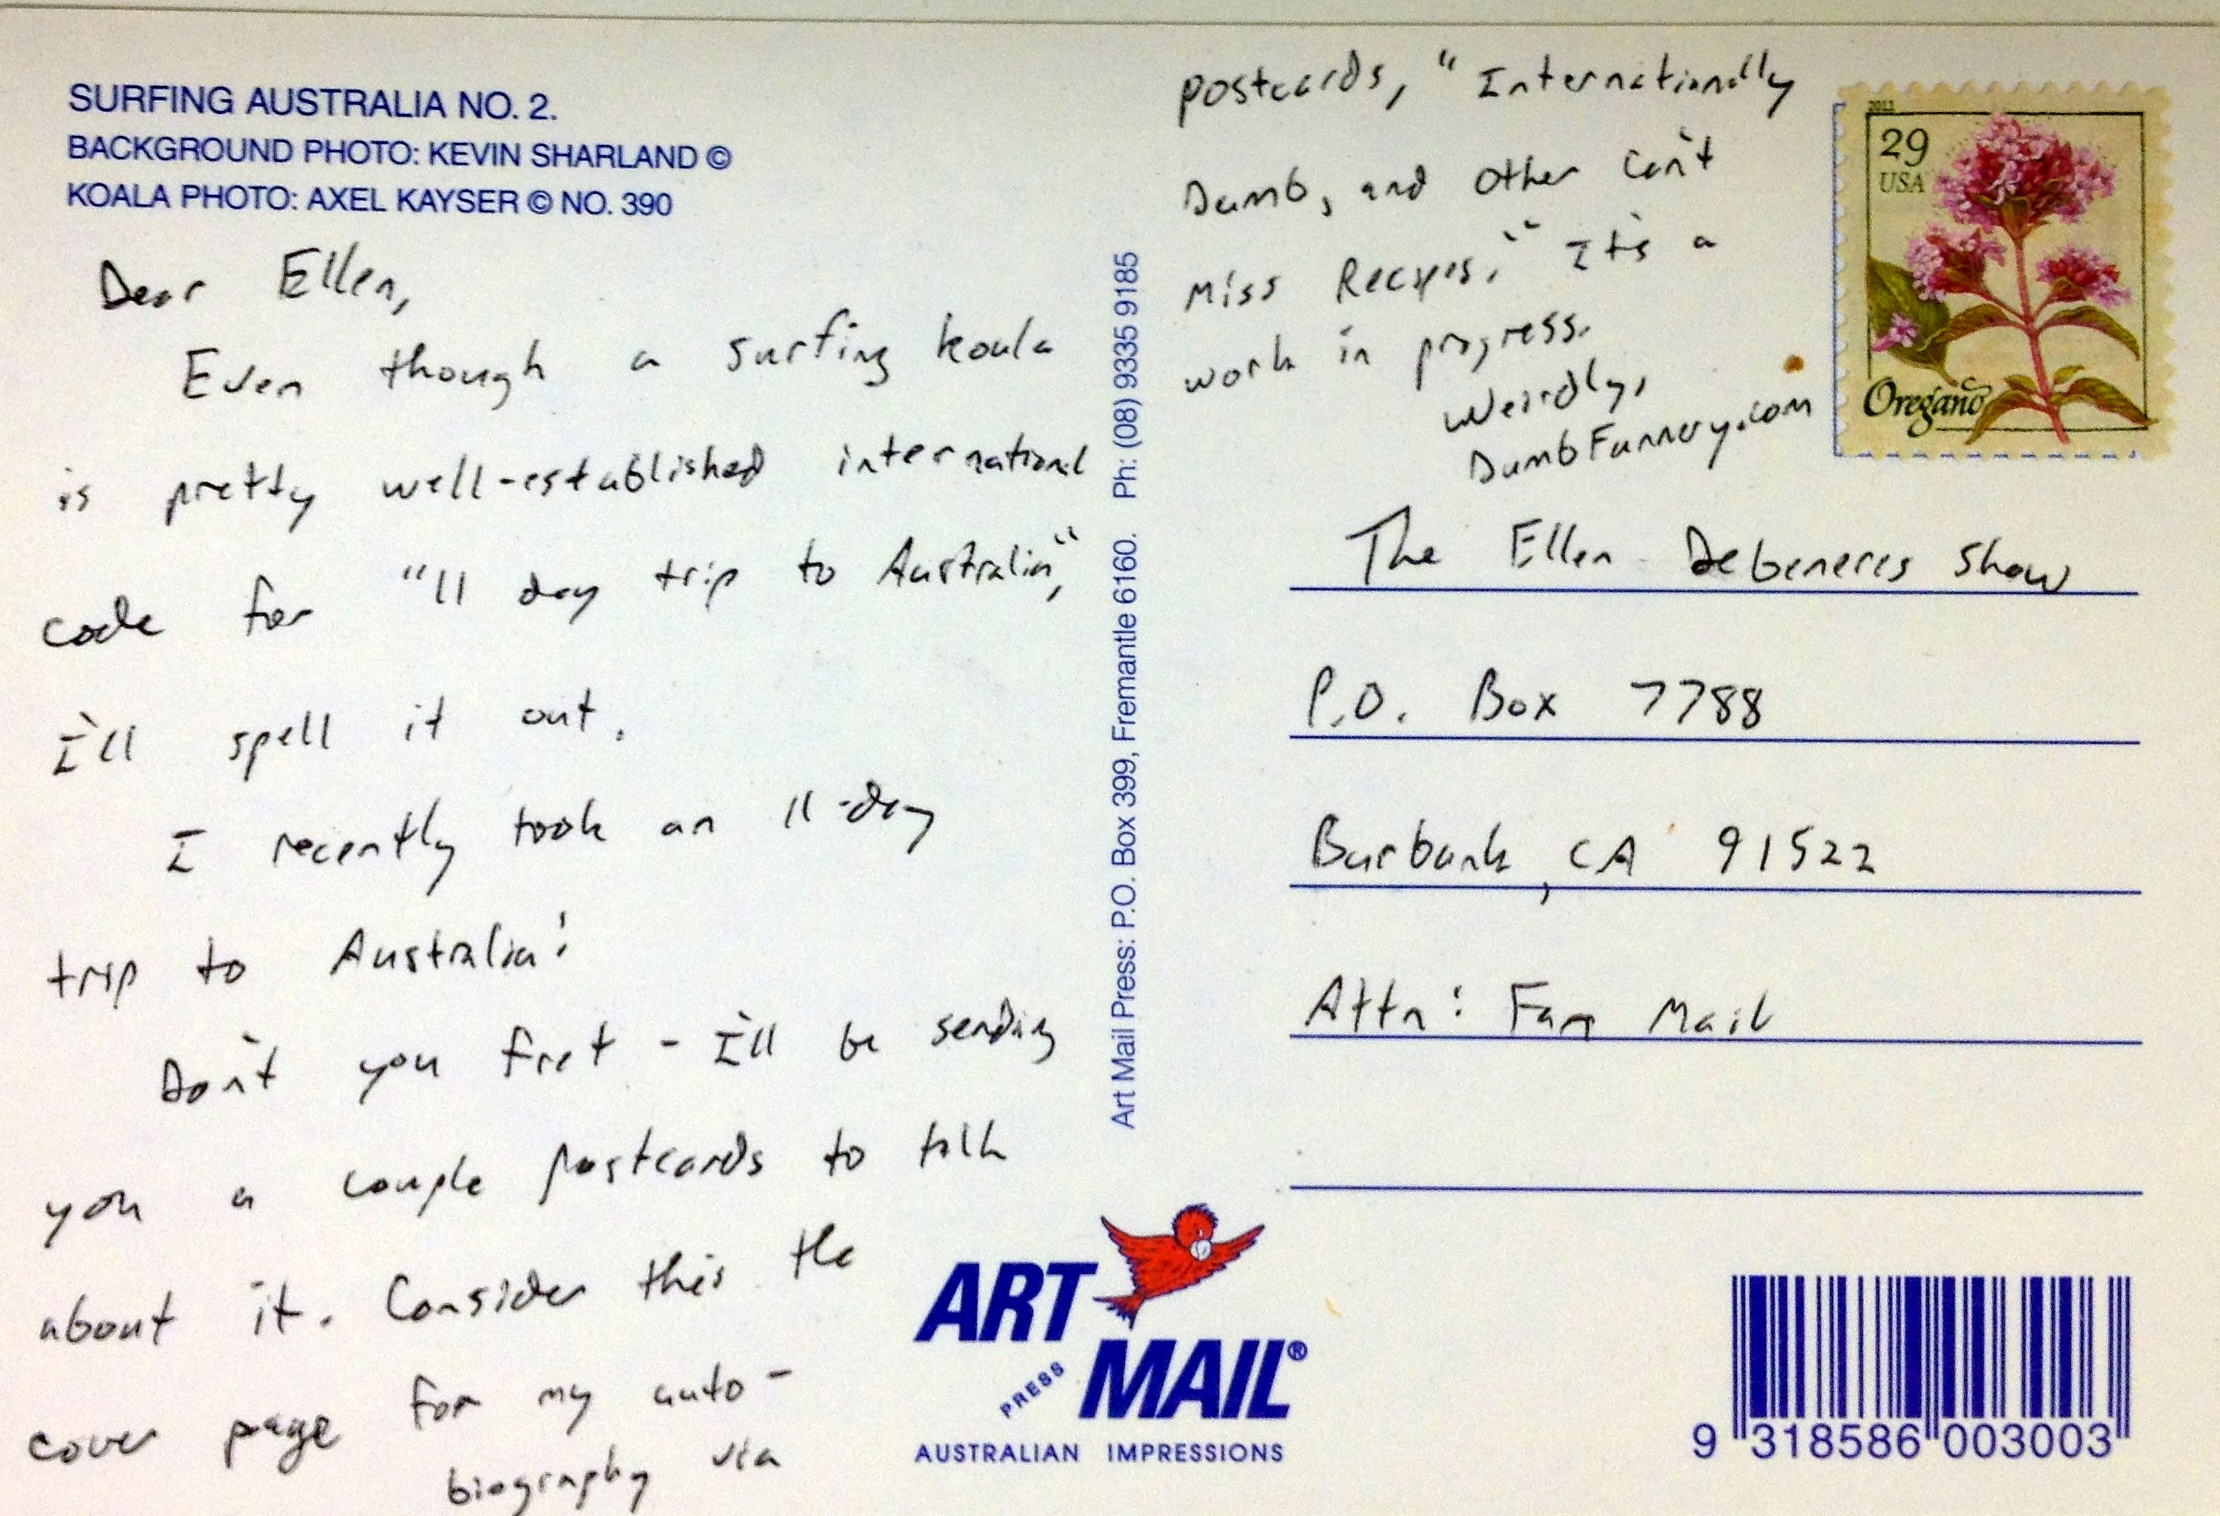 SURFING AUSTRALIA NO. 2.
BACKGROUND PHOTO: KEVIN SHARLAND ©
KOALA PHOTO: AXEL KAYSER © NO. 390
Dear Ellen,
Even though a surfing koala
is pretty well-established international
code for "11 day trip to Australia",
I'll spell it out.
I recently took an 11-day
trip to Australia!
Don't you fret - I'll be sending
you a couple postcards to talk
about it. Consider this the
cover page for my auto-
biography via
postcards, "Internationally
Dumb, and Other Can't
Miss Recipes." It's a
work in progress.
Weirdly,
DumbFunnery.com
2011
29
USA
Oregano
Art Mail Press: P.O. Box 399, Fremantle 6160. Ph: (08) 9335 9185
The Ellen Degeneres Show
P.O. Box 7788
Burbank, CA 91522
Attn: Fan Mail
ART
PRESS
MAIL®
AUSTRALIAN IMPRESSIONS
9 318586 003003